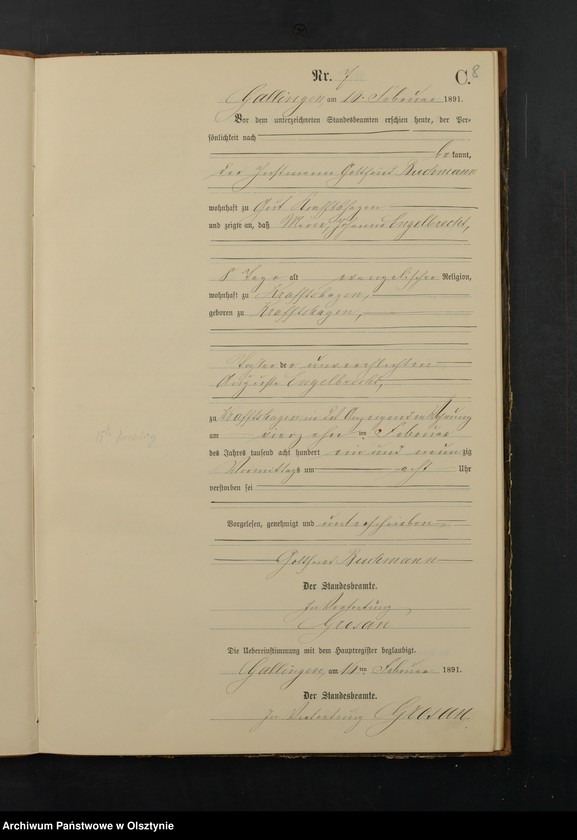 Nr. 7
C.
8
Gallingen, am 14. Februar 1891.
Vor dem unterzeichneten Standesbeamten erschien heute, der Per-
sönlichkeit nach
be kannt,
der Instmann Gottfried Buchmann
wohnhaft zu Gut Krafftshagen
und zeigte an, daß Marie Johanne Engelbrecht,
8 Tage alt evangelischer Religion,
wohnhaft zu Krafftshagen,
geboren zu Krafftshagen,
Tochter der unverehelichten
Auguste Engelbrecht,
zu Krafftshagen in des Anzeigenden Wohnung
am vierzehnten Februar
des Jahres tausend acht hundert ein und neun zig
Vormittags um acht Uhr
verstorben sei
Vorgelesen, genehmigt und unterschrieben
Gottfried Buchmann
Der Standesbeamte.
In Vertretung
Gresan
Die Uebereinstimmung mit dem Hauptregister beglaubigt.
Gallingen, am 14ten Februar 1891.
Der Standesbeamte.
In Vertretung Gresan
Archiwum Państwowe w Olsztynie